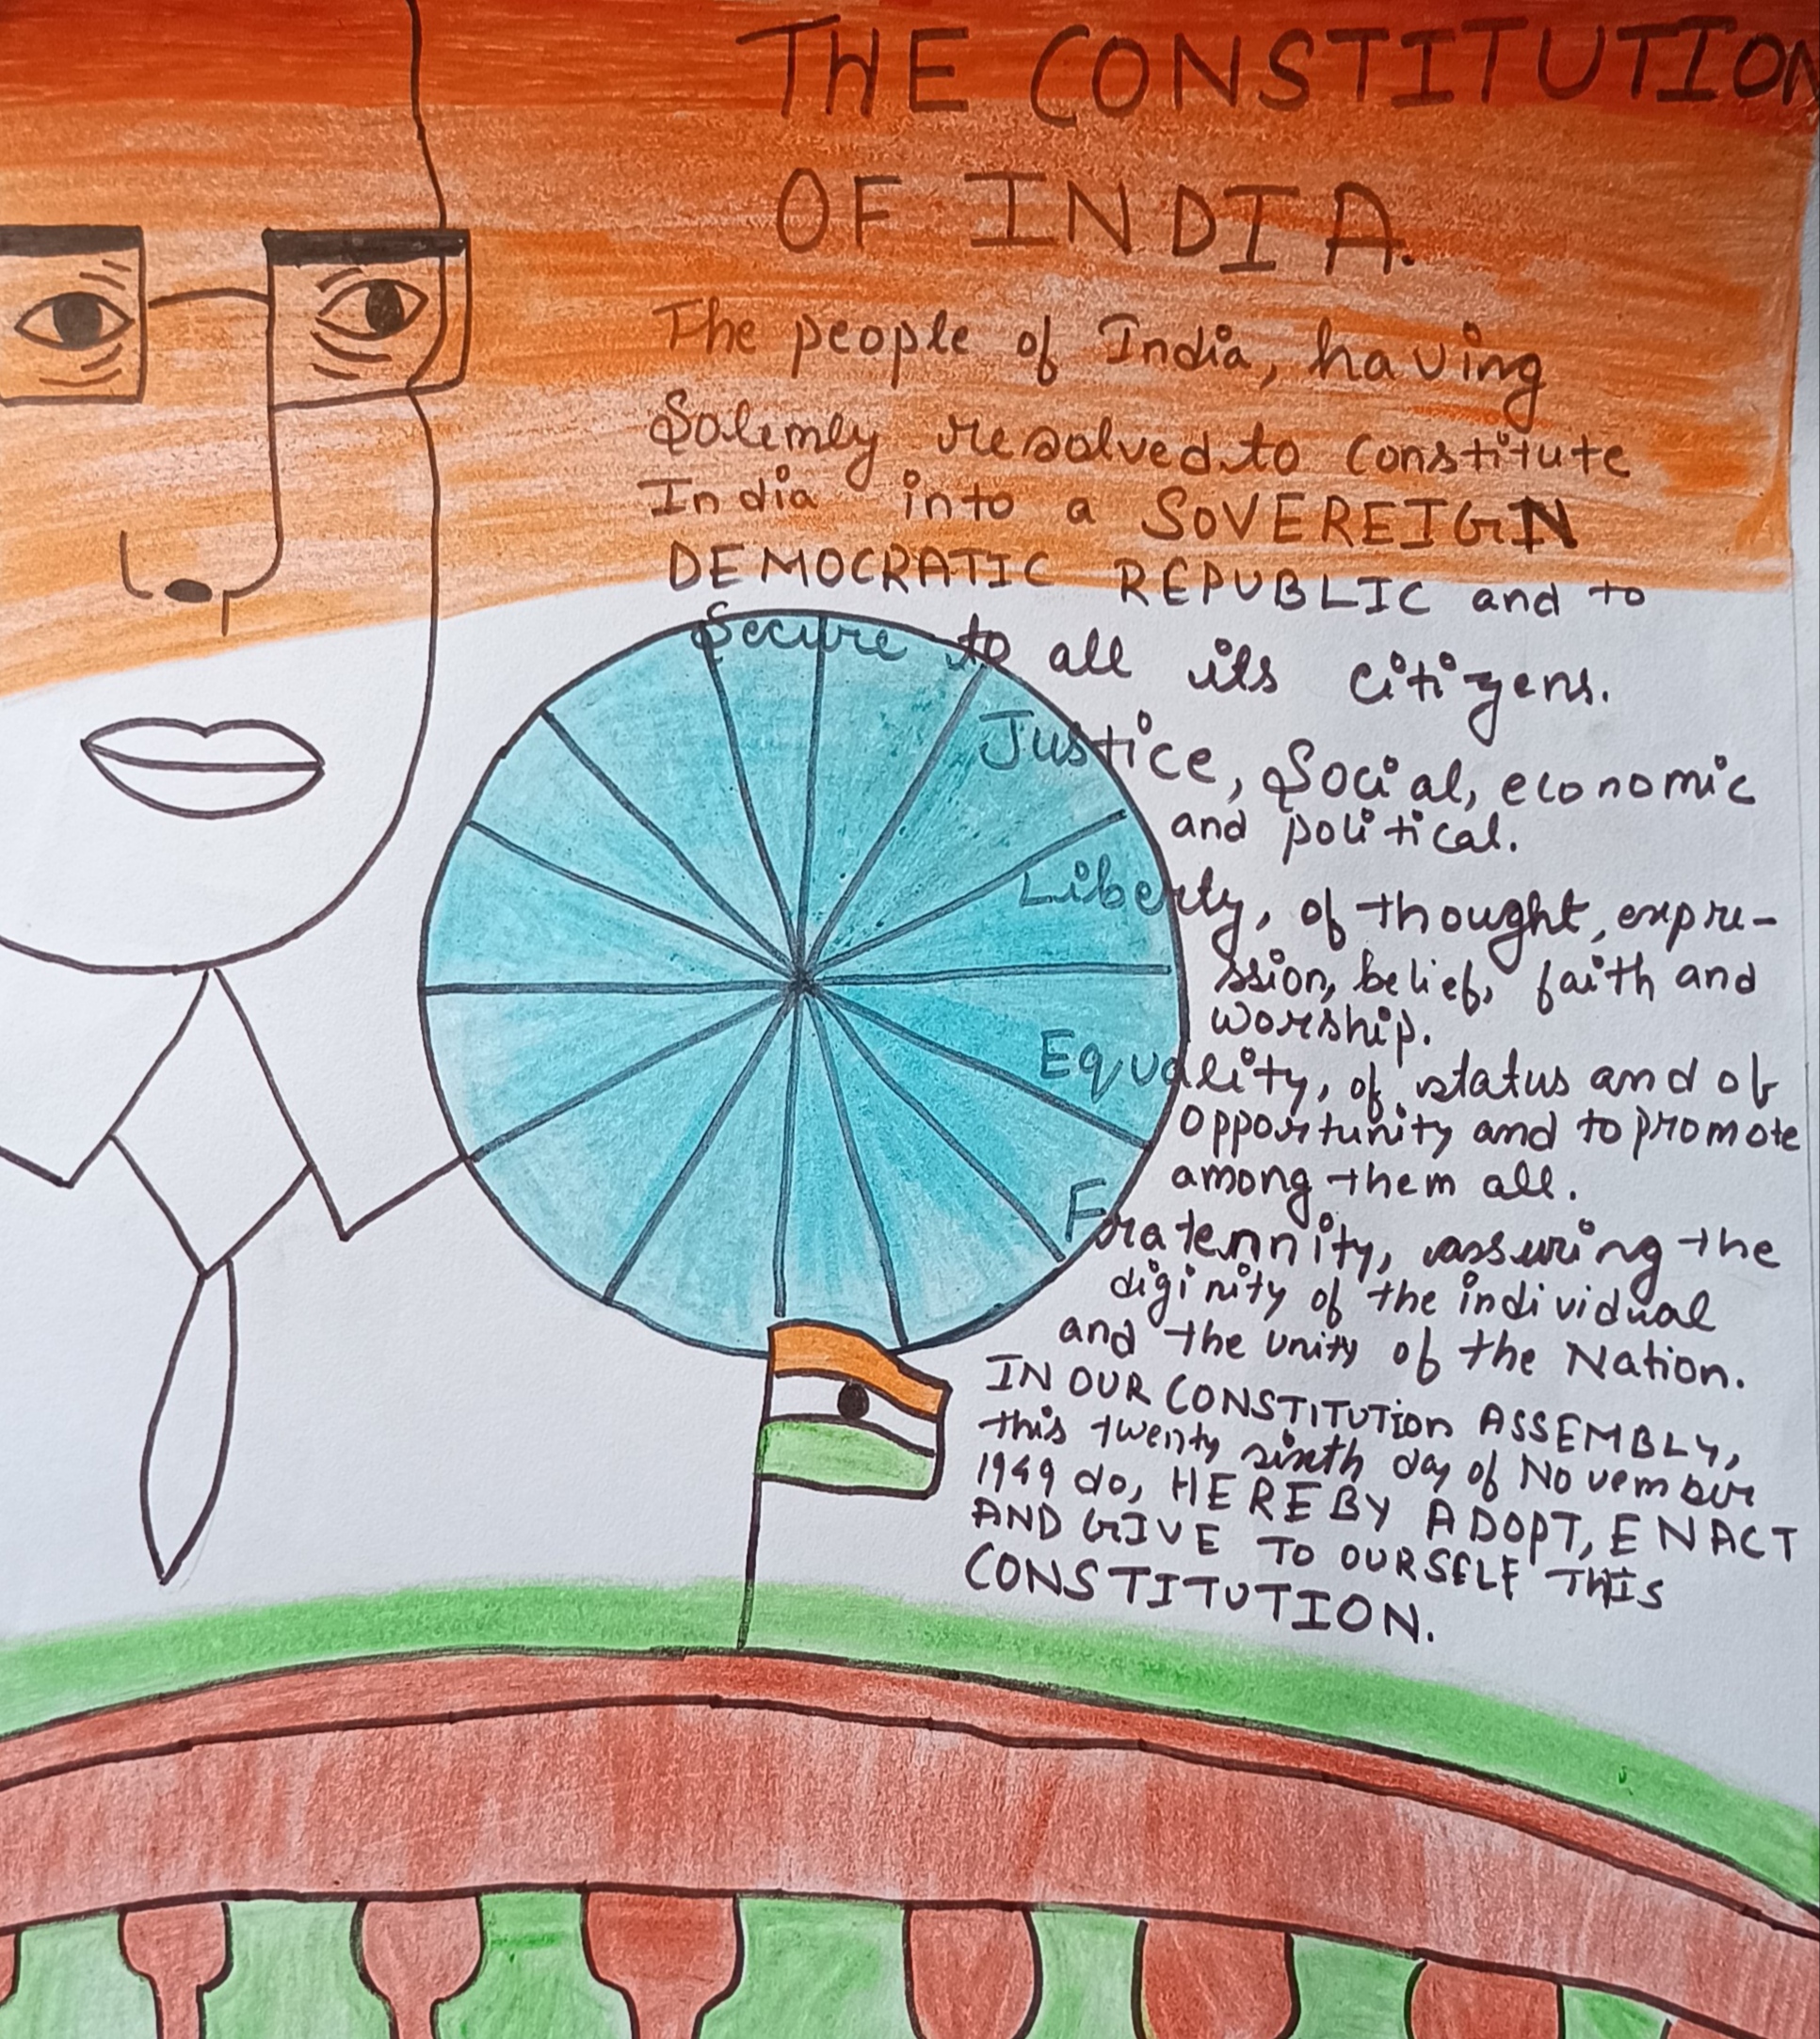 THE CONSTITUTION
OF INDIA.
The people of India, having
Solemly resolved to constitute
India into a SOVEREIGN
DEMOCRATIC REPUBLIC and to
Secure to all its citizens.
Justice, Social, economic
and political.
Liberty, of thought, expre-
ssion, belief, faith and
worship.
Equality, of status and of
opportunity and to promote
among them all.
Fratennity, assuring the
diginity of the individual
and the unity of the Nation.
IN OUR CONSTITUTION ASSEMBLY,
this twenty sixth day of November
1949 do, HEREBY ADOPT, ENACT
AND GIVE TO OURSELF THIS
CONSTITUTION.